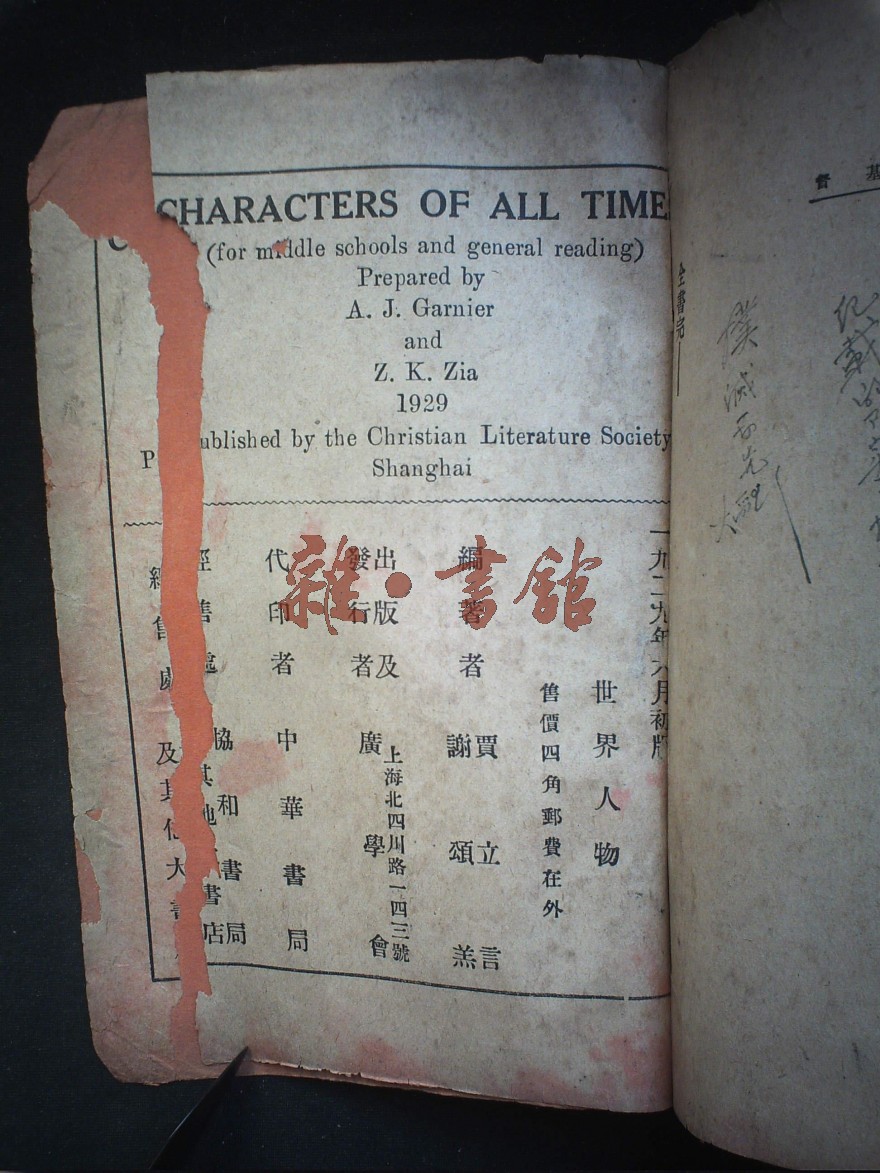 CHARACTERS OF ALL TIME
(for middle schools and general reading)
Prepared by
A. J. Garnier
and
Z. K. Zia
1929
Published by the Christian Literature Society
Shanghai
一九二九年六月初版
世界人物
售價四角郵費在外
編著者 賈立言 謝頌羔
出版及發行者 廣學會
上海北四川路一四三號
代印者 中華書局
經售處 協和書局
及其他大書店
雜·書館
基督
全書完